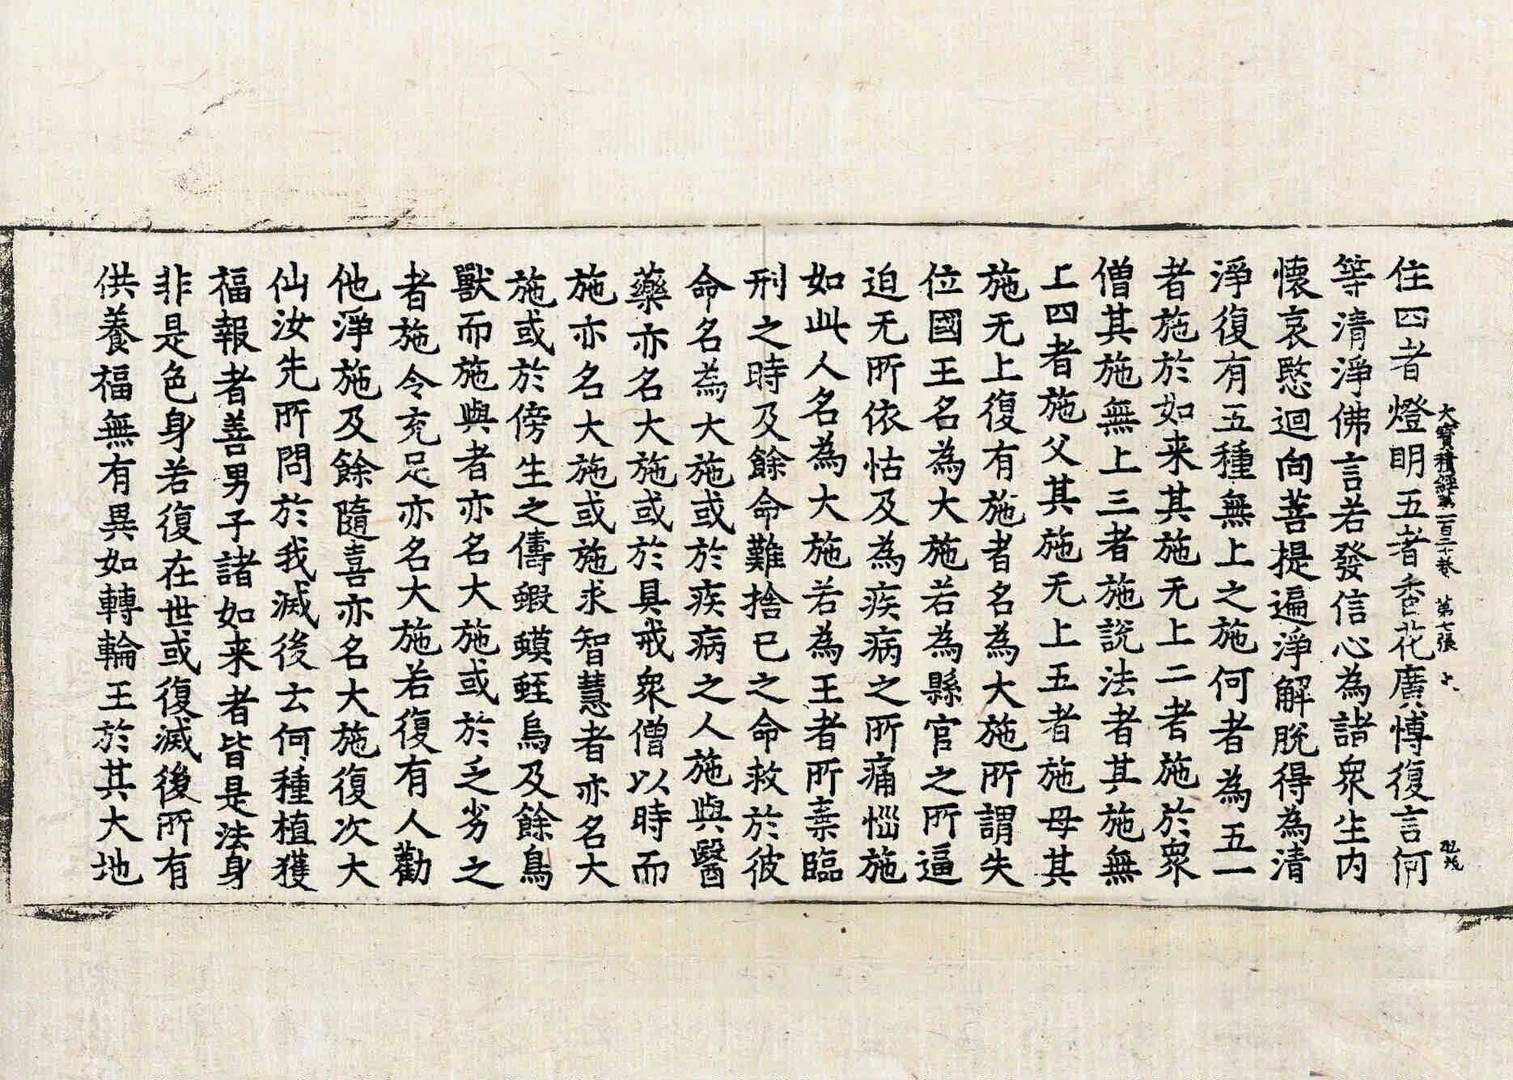 大寶積經第一百二十卷 第七張 乃
住四者燈明五者香花廣愽復言何
等清淨佛言若發信心為諸衆生内
懷哀愍迴向菩提遍淨解脫得為清
淨復有五種無上之施何者為五一
者施於如来其施无上二者施於衆
僧其施無上三者施說法者其施無
上四者施父其施无上五者施母其
施无上復有施者名為大施所謂失
位國王名為大施若為縣官之所逼
迫无所依怙及為疾病之所痛惱施
如此人名為大施若為王者所棄臨
刑之時及餘命難捨已之命救於彼
命名為大施或於疾病之人施與醫
藥亦名大施或於具戒衆僧以時而
施亦名大施或施求智慧者亦名大
施或於傍生之儔蝦蟆蛭烏及餘鳥
獸而施與者亦名大施或於乏劣之
者施令充足亦名大施若復有人勸
他淨施及餘隨喜亦名大施復次大
仙汝先所問於我滅後云何種植獲
福報者善男子諸如来者皆是法身
非是色身若復在世或復滅後所有
供養福無有異如轉輪王於其大地